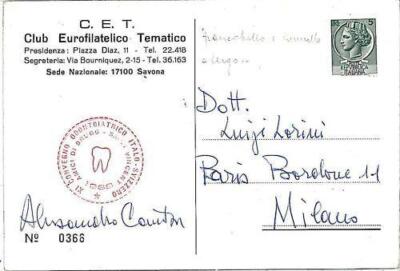 C. E. T.
Club Eurofilatelico Tematico
Presidenza: Piazza Diaz, 11 - Tel. 22.418
Segreteria: Via Bourniquez, 2-15 - Tel. 36.163
Sede Nazionale: 17100 Savona
XI CONVEGNO ODONTOIATRICO ITALO-SVIZZERO
AMICI DI BRUGG
1969
Alessandro
Nº 0366
a tergo
5
Dott.
Luigi Lorini
Paris Bordone 11
Milano